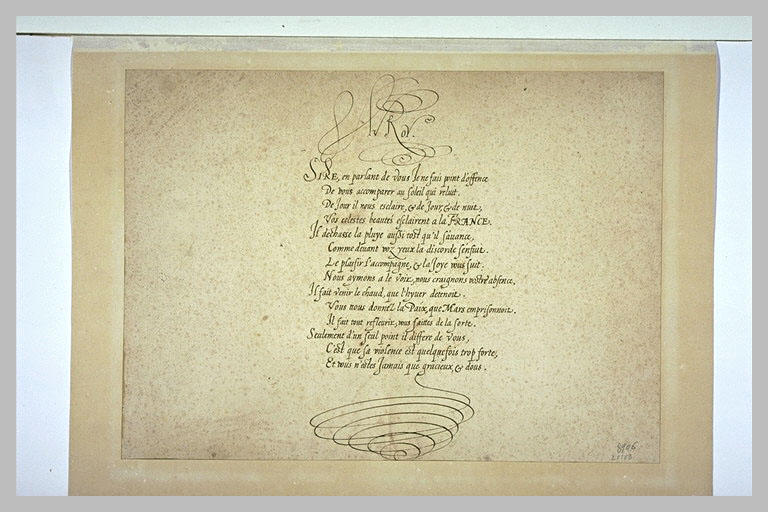 Au Roy.
SIRE, en parlant de vous Je ne fais point d'offence
De vous accomparer au soleil qui reluit.
De Jour il nous esclaire, & de Jour, & de nuit,
Vos celestes beautés esclairent a la FRANCE.
Il dechasse la pluye aussi tost qu'il s'avance,
Comme devant voz yeux la discorde s'enfuit.
Le plaisir l'accompagne, & la Joye vous suit.
Nous aymons a le voir, nous craignons vostre absence.
Il fait venir le chaud, que l'hyver detenoit.
Vous nous donnez la Paix, que Mars emprisonnoit.
Il fait tout refleurir, vous faittes de la sorte.
Seulement d'un seul point il differe de vous,
C'est que sa violence est quelquefois trop forte,
Et vous n'estes Jamais que gracieux, & dous.